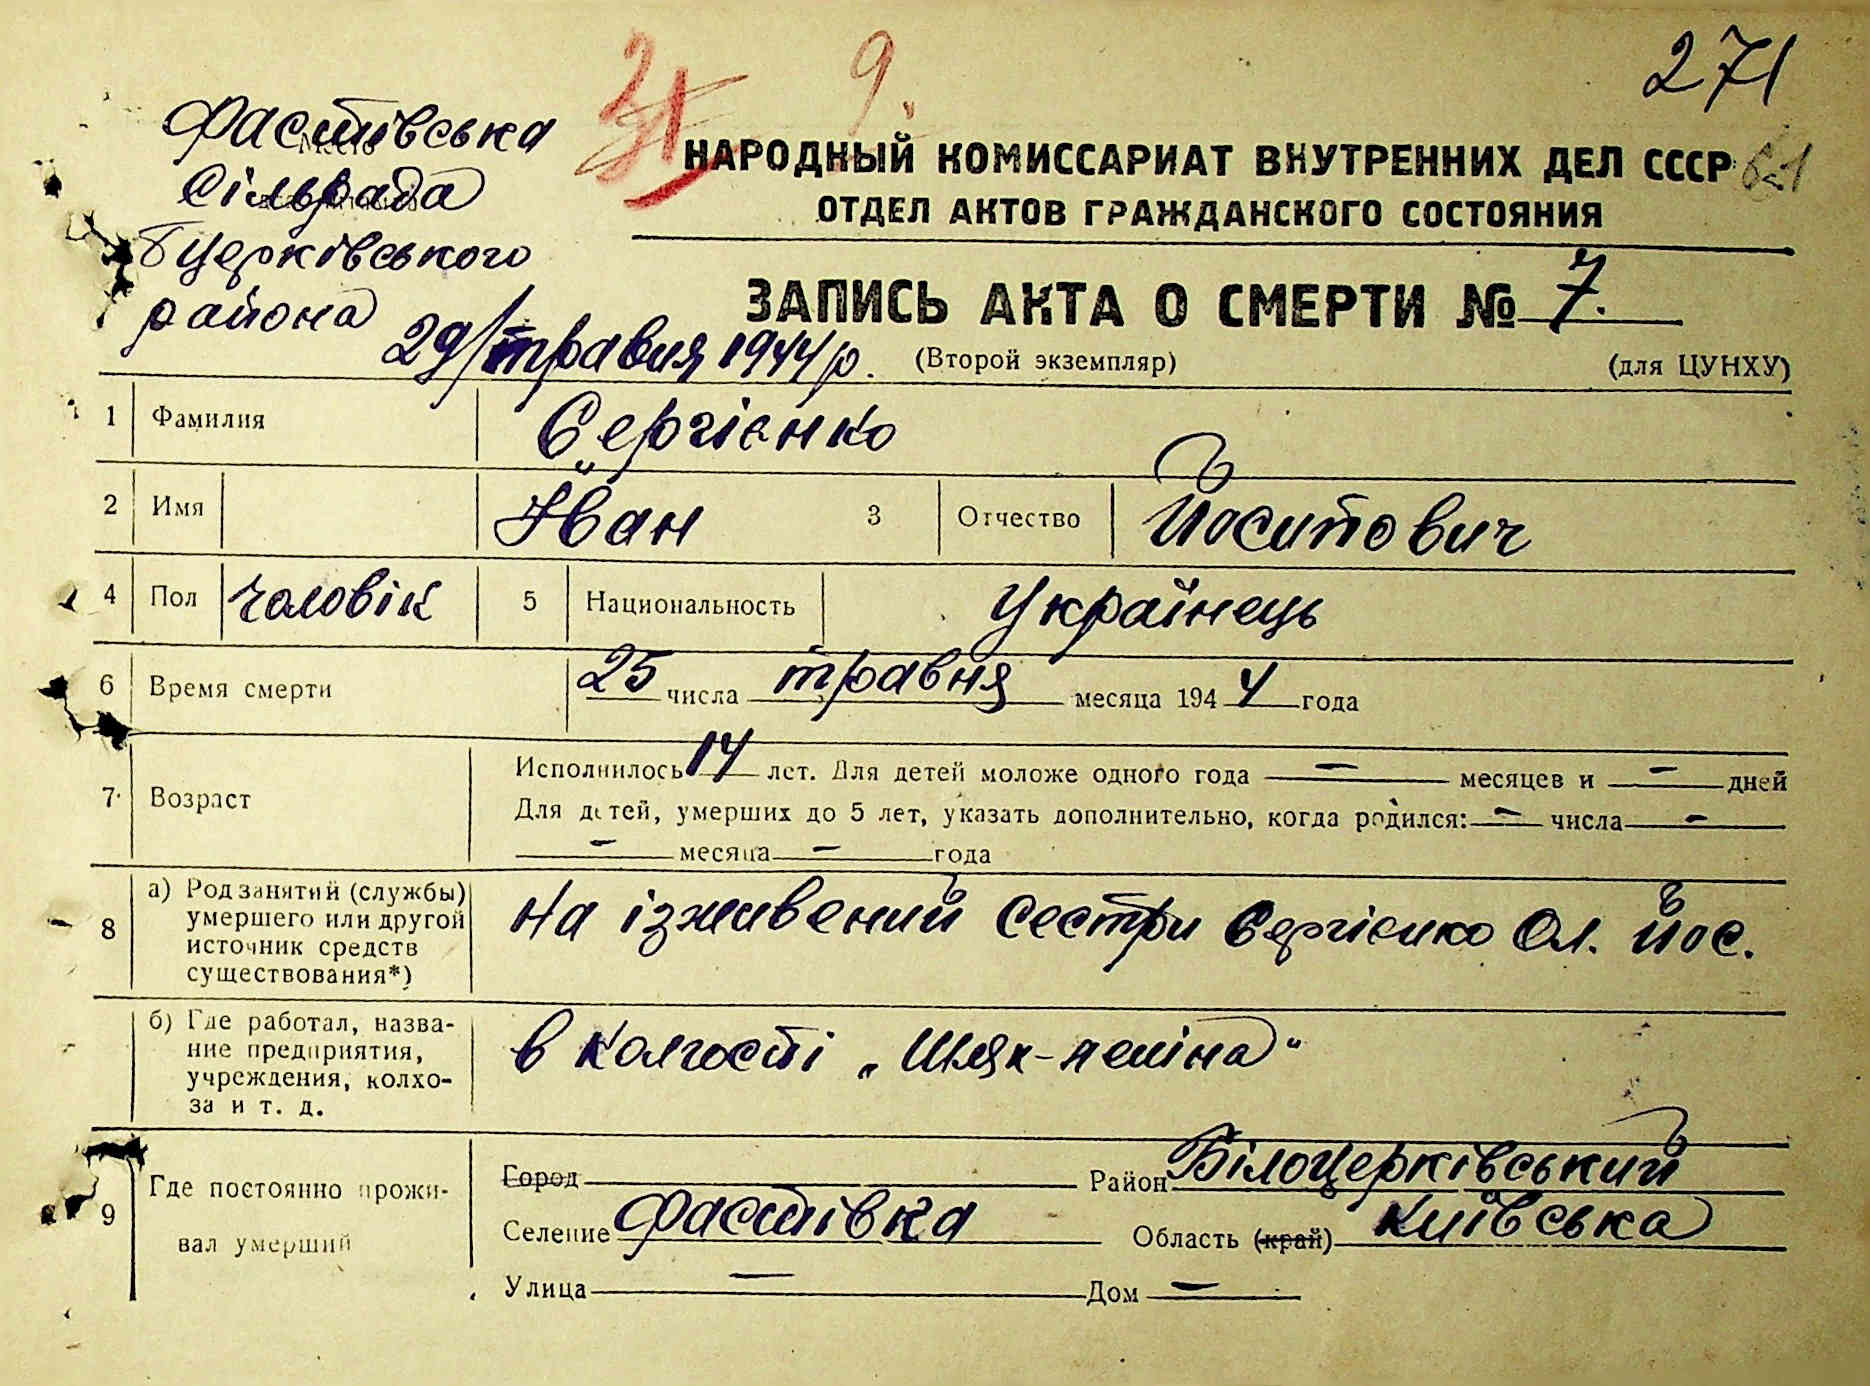 271
21 9.
31
Фастівська
Сільрада
Бцерківського
района
29/травня 1944 р.
НАРОДНЫЙ КОМИССАРИАТ ВНУТРЕННИХ ДЕЛ СССР
ОТДЕЛ АКТОВ ГРАЖДАНСКОГО СОСТОЯНИЯ
ЗАПИСЬ АКТА О СМЕРТИ № 7.
(Второй экземпляр) (для ЦУНХУ)
1 Фамилия Сергієнко
2 Имя Іван 3 Отчество Йосипович
4 Пол чоловік 5 Национальность Українець
6 Время смерти 25 числа травня месяца 1944 года
7 Возраст Исполнилось 14 лет. Для детей моложе одного года — месяцев и — дней
Для детей, умерших до 5 лет, указать дополнительно, когда родился: — числа —
— месяца — года
8 а) Род занятий (службы) умершего или другой источник средств существования*) На ізживений сестри Сергієнко Ол. Йос.
б) Где работал, название предприятия, учреждения, колхоза и т. д. в колгості „Шлях-леніна“
9 Где постоянно проживал умерший
Город Район Білоцерківський
Селение Фастівка Область (край) Київська
Улица — Дом —